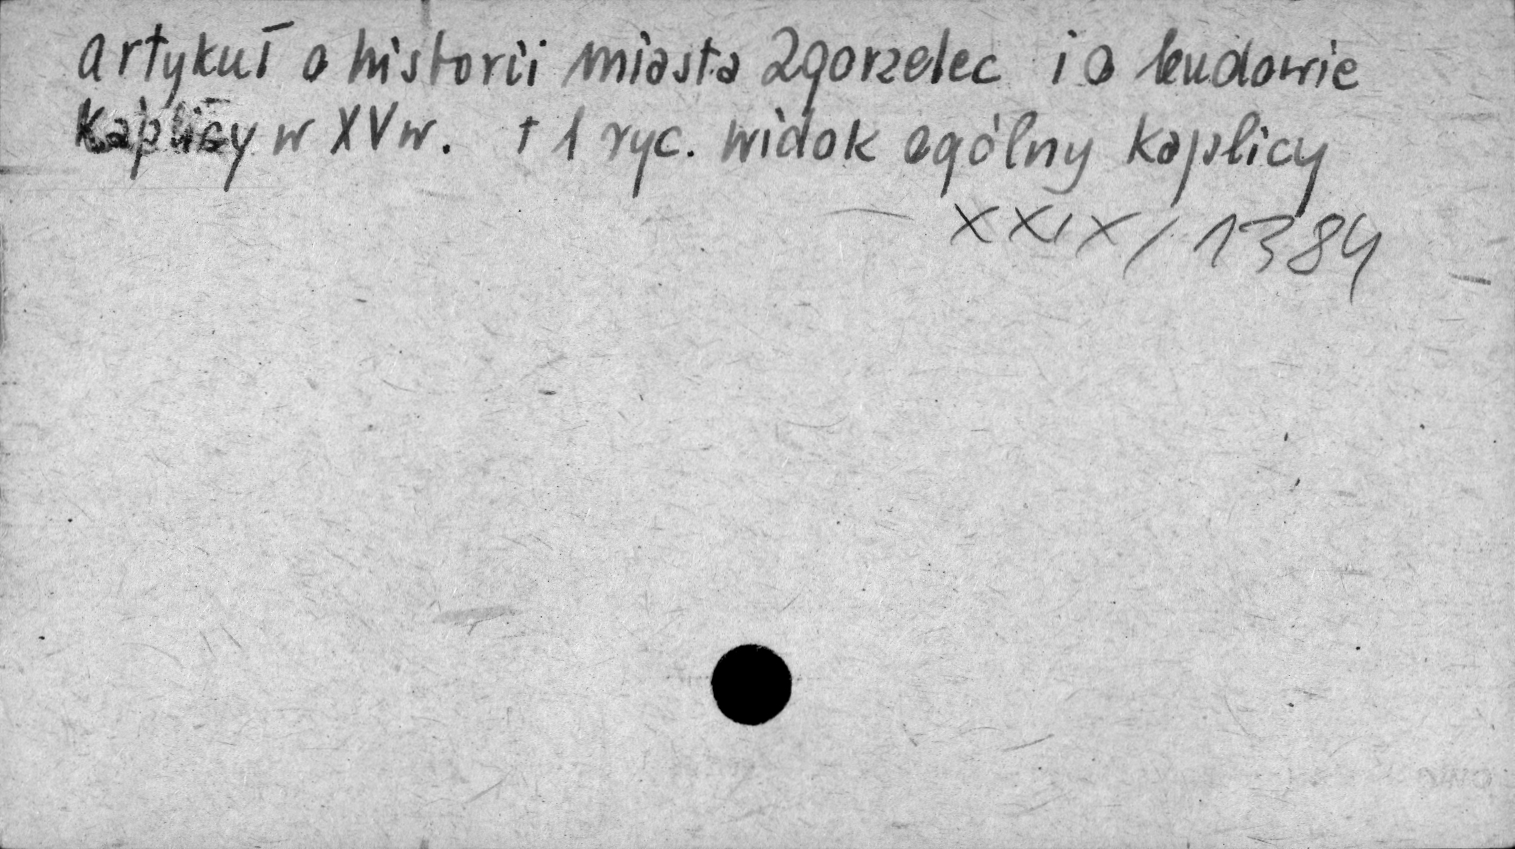 artykuł o historii miasta Zgorzelec i o budowie
Kaplicy w XV w. + 1 ryc. widok ogólny kaplicy
XXIX / 1384